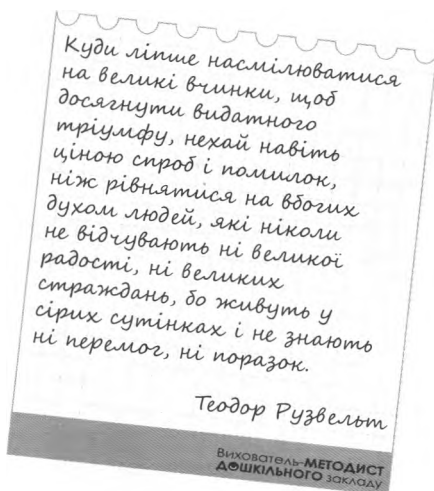 Куди ліпше насмілюватися
на великі вчинки, щоб
досягнути видатного
тріумфу, нехай навіть
ціною спроб і помилок,
ніж рівнятися на вбогих
духом людей, які ніколи
не відчувають ні великої
радості, ні великих
страждань, бо живуть у
сірих сутінках і не знають
ні перемог, ні поразок.
Теодор Рузвельт
Вихователь-МЕТОДИСТ
ДОШКІЛЬНОГО закладу